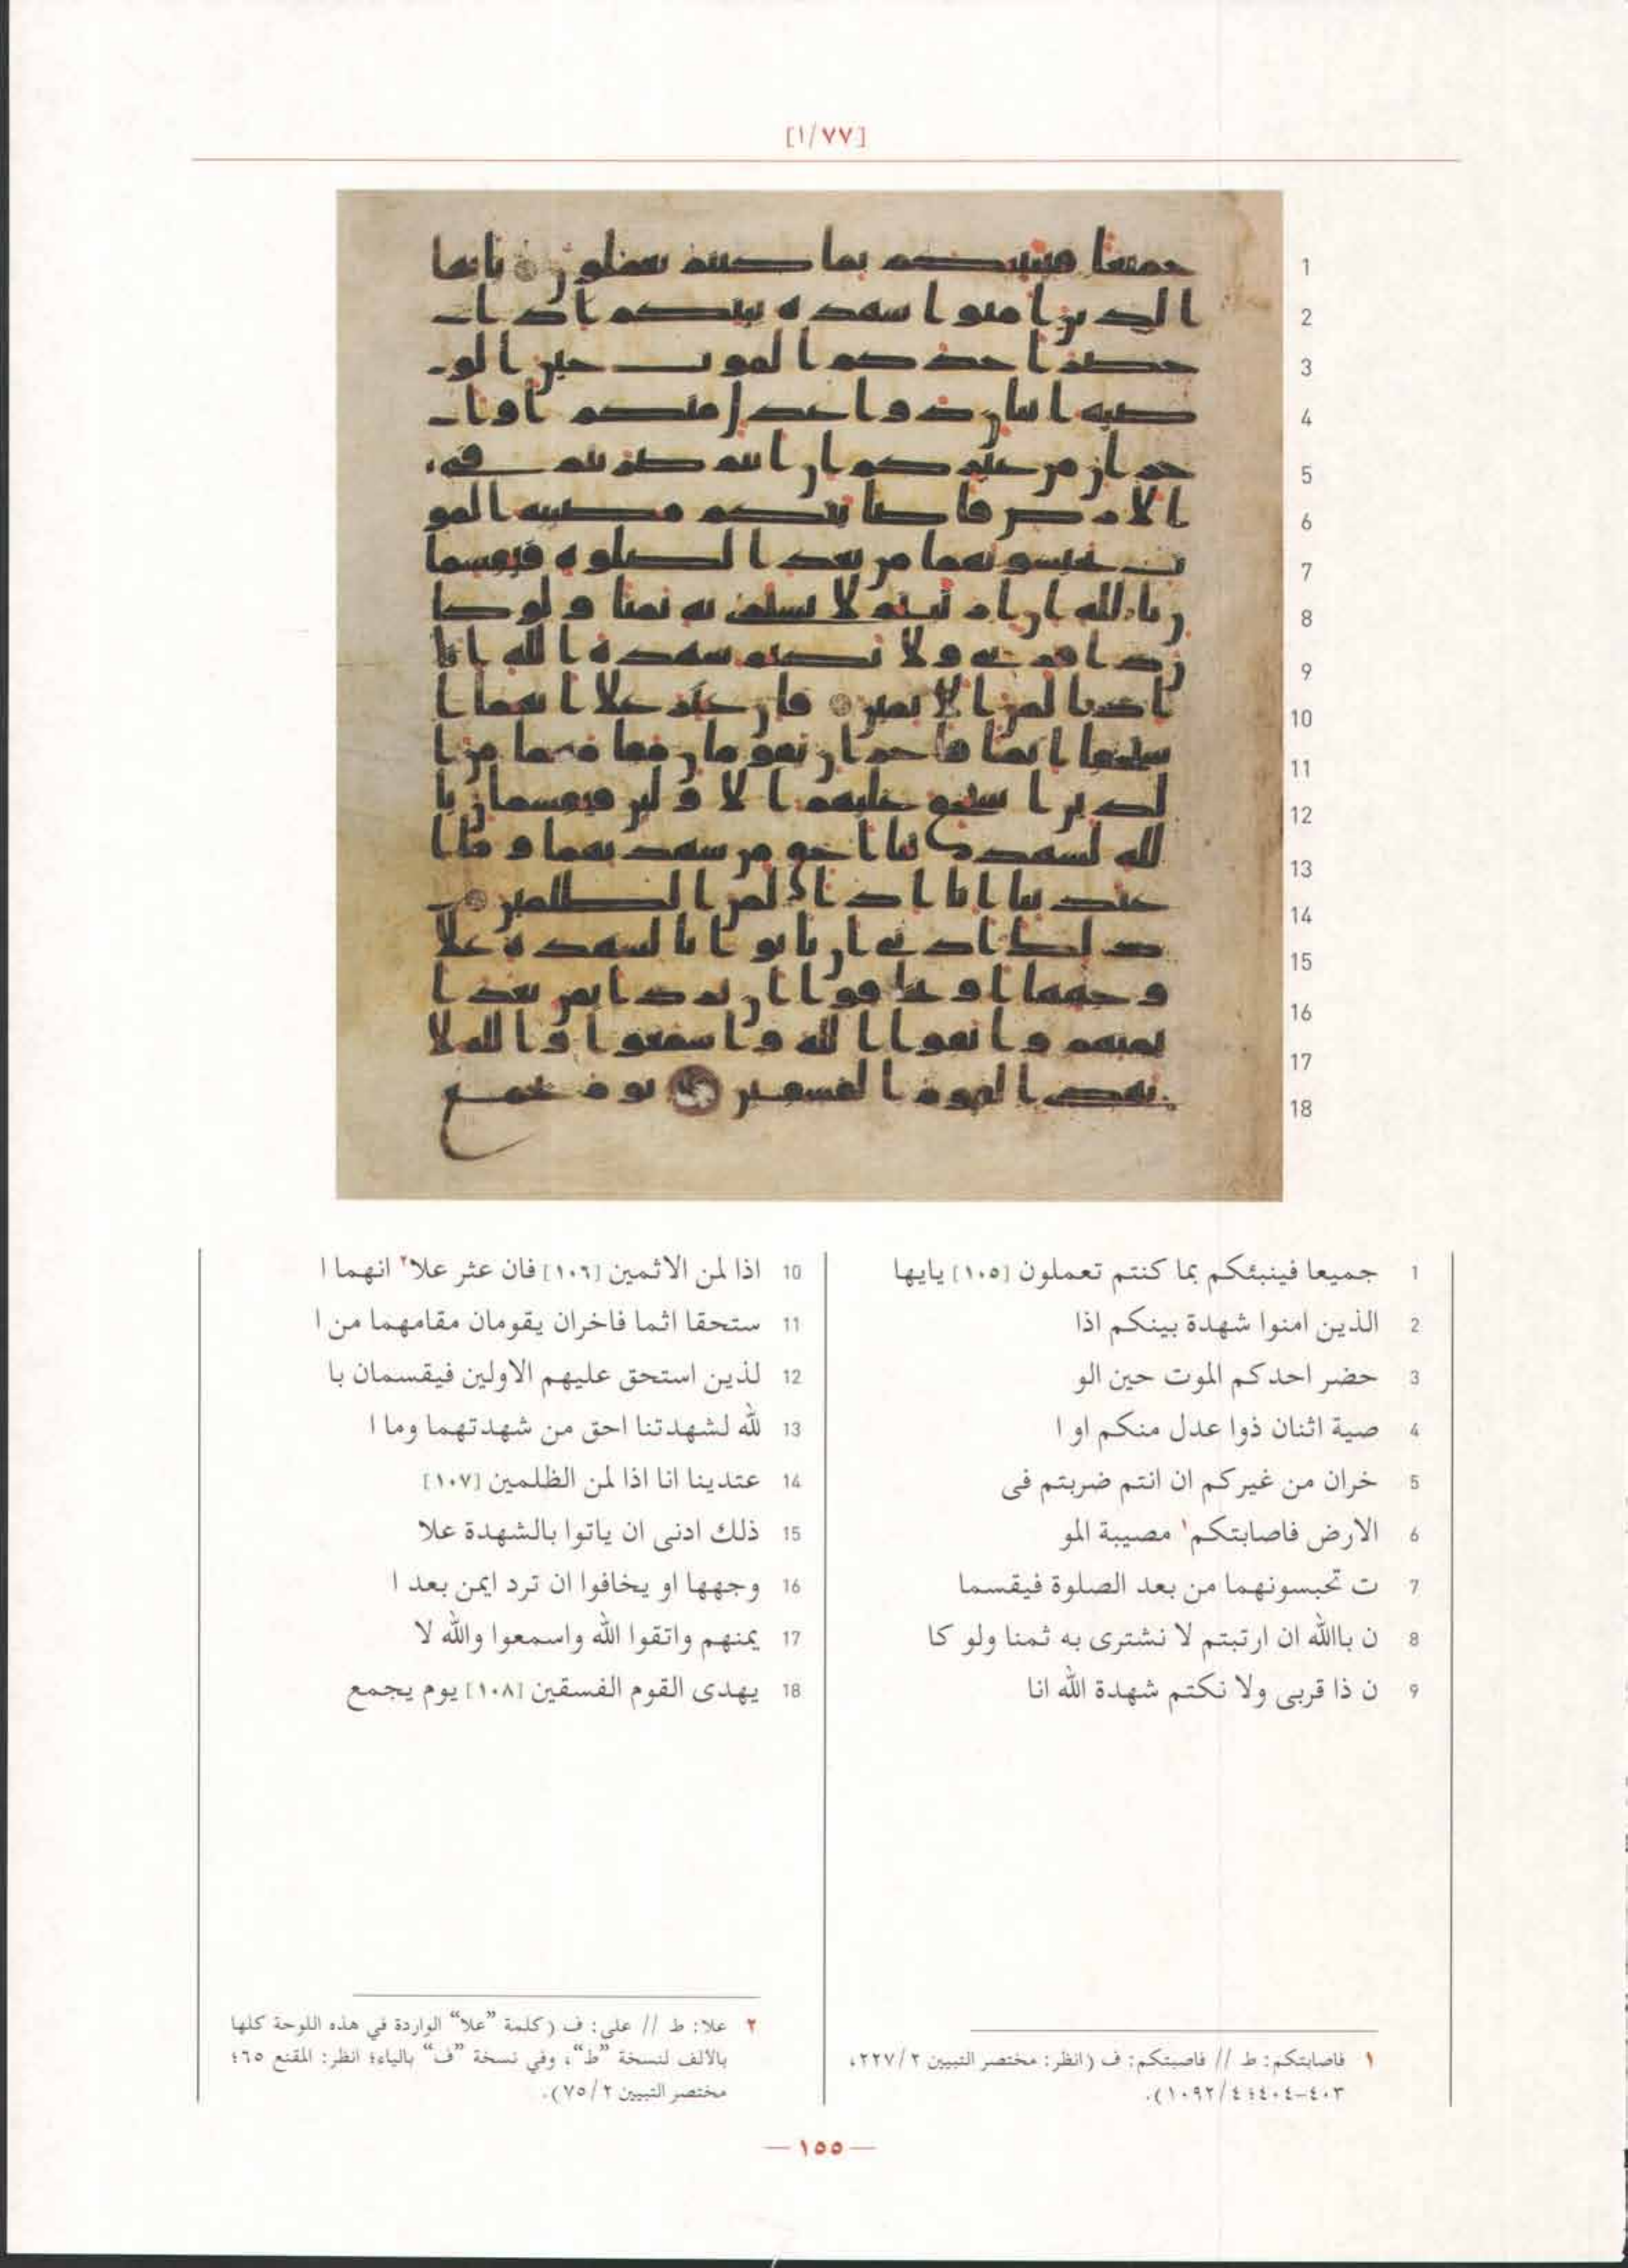 [١/٧٧]
1 جميعا فينبئكم بما كنتم تعملون [١٠٥] يايها
2 الذين امنوا شهدة بينكم اذا
3 حضر احدكم الموت حين الو
4 صية اثنان ذوا عدل منكم او ا
5 خران من غيركم ان انتم ضربتم فى
6 الارض فاصابتكم١ مصيبة المو
7 ت تحبسونهما من بعد الصلوة فيقسما
8 ن باالله ان ارتبتم لا نشترى به ثمنا ولو كا
9 ن ذا قربى ولا نكتم شهدة الله انا
10 اذا لمن الاثمين [١٠٦] فان عثر علا٢ انهما ا
11 ستحقا اثما فاخران يقومان مقامهما من ا
12 لذين استحق عليهم الاولين فيقسمان با
13 لله لشهدتنا احق من شهدتهما وما ا
14 عتدينا انا اذا لمن الظلمين [١٠٧]
15 ذلك ادنى ان ياتوا بالشهدة علا
16 وجهها او يخافوا ان ترد ايمن بعد ا
17 يمنهم واتقوا الله واسمعوا والله لا
18 يهدى القوم الفسقين [١٠٨] يوم يجمع
١ فاصابتكم: ط // فاصبتكم: ف (انظر: مختصر التبيين ٢٢٧/٢،
٤٠٣-٤٠٤؛ ١٠٩٢/٤).
٢ علا: ط // على: ف (كلمة ”علا“ الواردة في هذه اللوحة كلها
بالالف لنسخة ”ط“، وفي نسخة ”ف“ بالياء؛ انظر: المقنع ٦٥؛
مختصر التبيين ٧٥/٢).
— ١٥٥ —